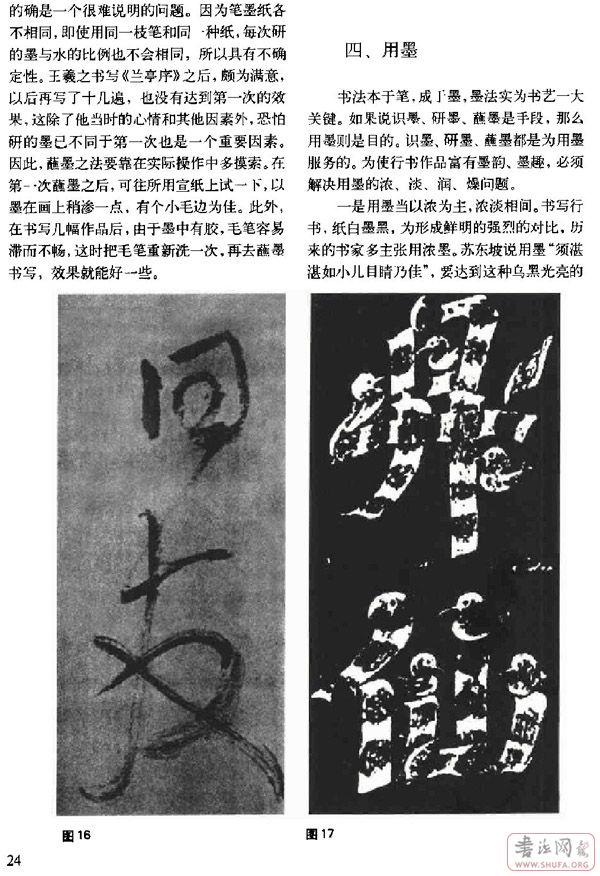 的确是一个很难说明的问题。因为笔墨纸各
不相同,即使用同一枝笔和同一种纸,每次研
的墨与水的比例也不会相同,所以具有不确
定性。王羲之书写《兰亭序》之后,颇为满意,
以后再写了十几遍,也没有达到第一次的效
果,这除了他当时的心情和其他因素外,恐怕
研的墨已不同于第一次也是一个重要因素。
因此,蘸墨之法要靠在实际操作中多摸索。在
第一次蘸墨之后,可往所用宣纸上试一下,以
墨在画上稍渗一点,有个小毛边为佳。此外,
在书写几幅作品后,由于墨中有胶,毛笔容易
滞而不畅,这时把毛笔重新洗一次,再去蘸墨
书写,效果就能好一些。
四、用墨
书法本于笔,成于墨,墨法实为书艺一大
关键。如果说识墨、研墨、蘸墨是手段,那么
用墨则是目的。识墨、研墨、蘸墨都是为用墨
服务的。为使行书作品富有墨韵、墨趣,必须
解决用墨的浓、淡、润、燥问题。
一是用墨当以浓为主,浓淡相间。书写行
书,纸白墨黑,为形成鲜明的强烈的对比,历
来的书家多主张用浓墨。苏东坡说用墨“须湛
湛如小儿目睛乃佳”,要达到这种乌黑光亮的
图16
图17
24
书法网
WWW.SHUFA.ORG